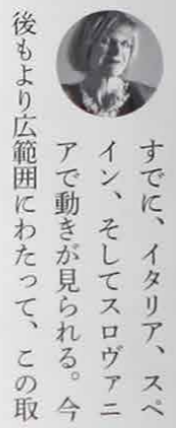 すでに、イタリア、スペ
イン、そしてスロヴァニ
アで動きが見られる。今
後もより広範囲にわたって、この取